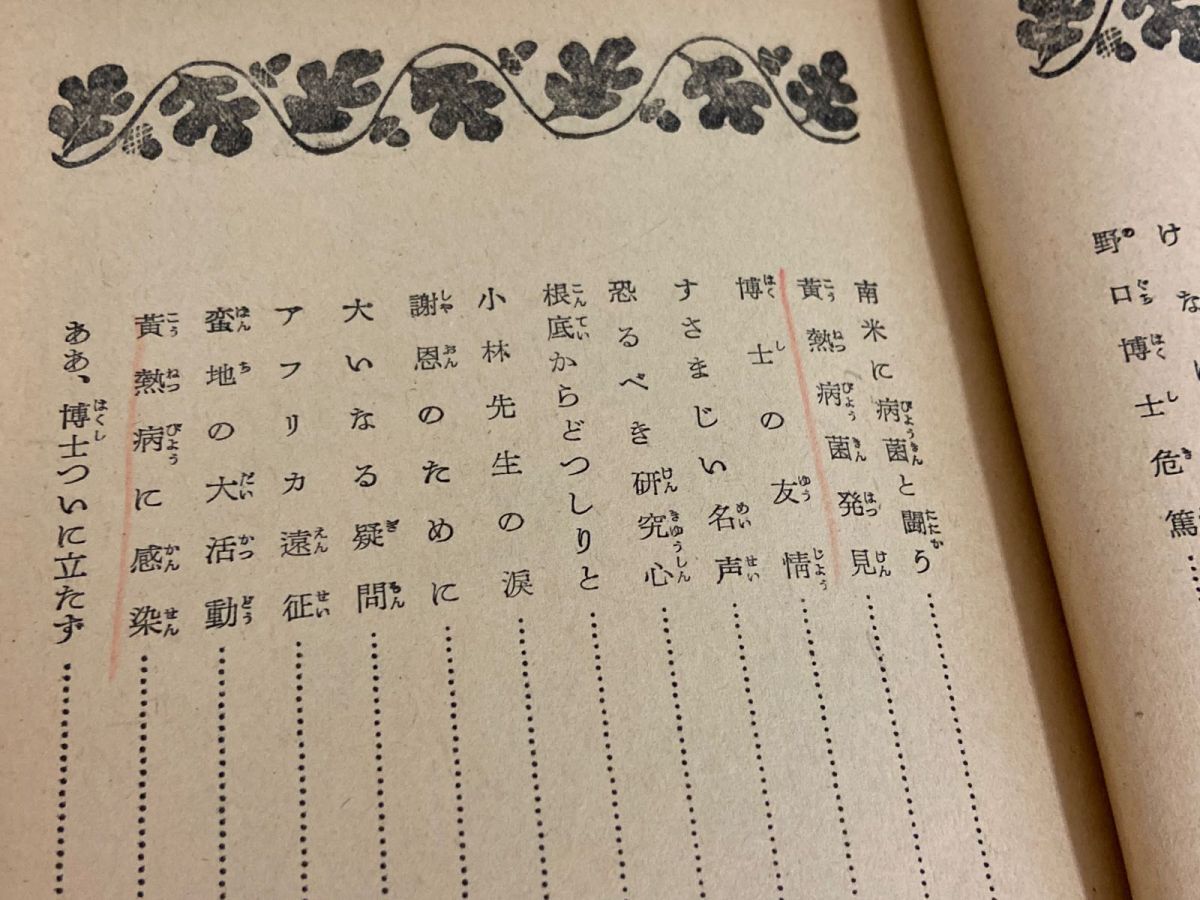 けな
野口博士危篤
南米に病菌と闘う
黄熱病菌発見
博士の友情
すさまじい名声
恐るべき研究心
根底からどつしりと
小林先生の涙
謝恩のために
大いなる疑問
アフリカ遠征
蛮地の大活動
黄熱病に感染
ああ、博士ついに立たず